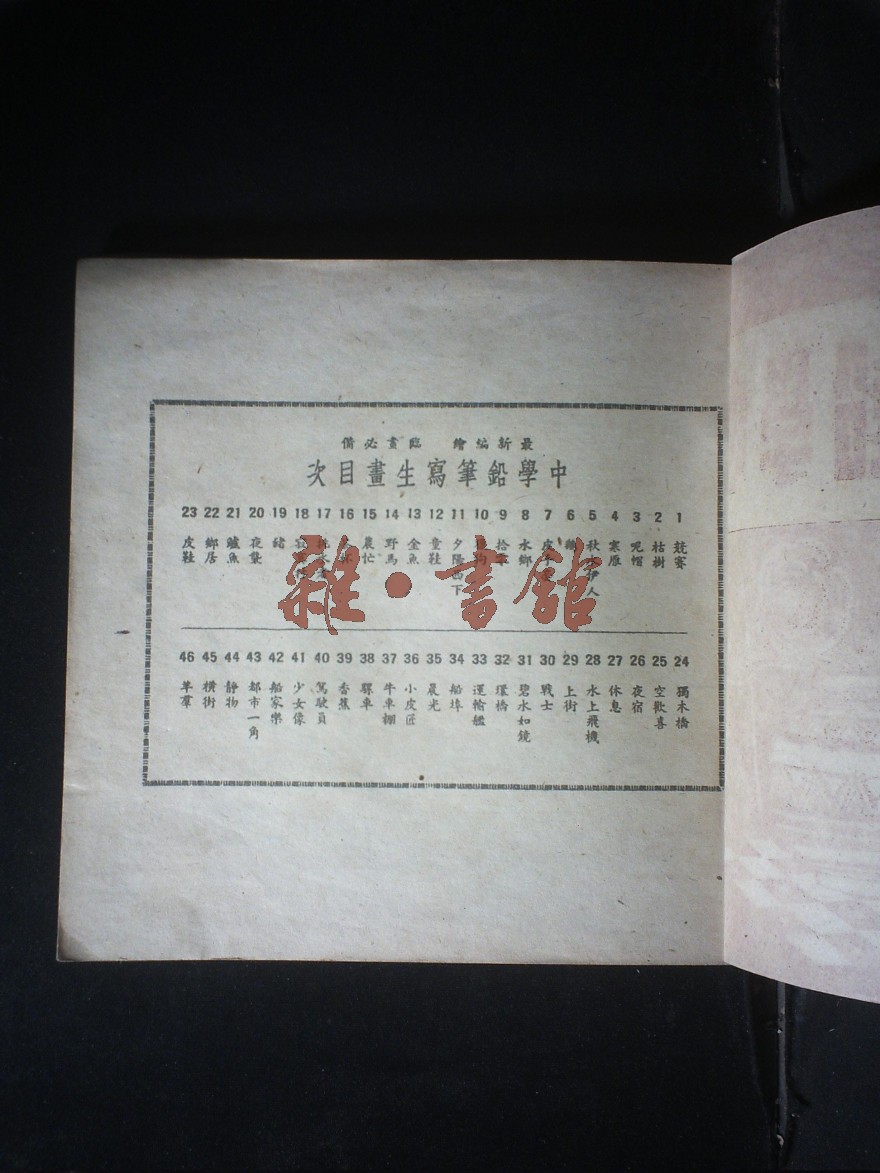 最新編繪 臨畫必備
中學鉛筆寫生畫目次
1 競賽
2 枯樹
3 呢帽
4 寒雁
5 秋水伊人
6
7
8 水鄉
9
10
11 夕陽西下
12 童鞋
13 金魚
14 野馬
15 農忙
16
17
18
19 豬
20 夜襲
21 鱸魚
22 鄉居
23 皮鞋
24 獨木橋
25 空歡喜
26 夜宿
27 休息
28 水上飛機
29 上街
30 戰士
31 碧水如鏡
32 環橋
33 運輸艦
34 船埠
35 晨光
36 小皮匠
37 牛車棚
38 騾車
39 香蕉
40 駕駛員
41 少女像
42 船家樂
43 都市一角
44 靜物
45 橫街
46 羊羣
雜·書舘